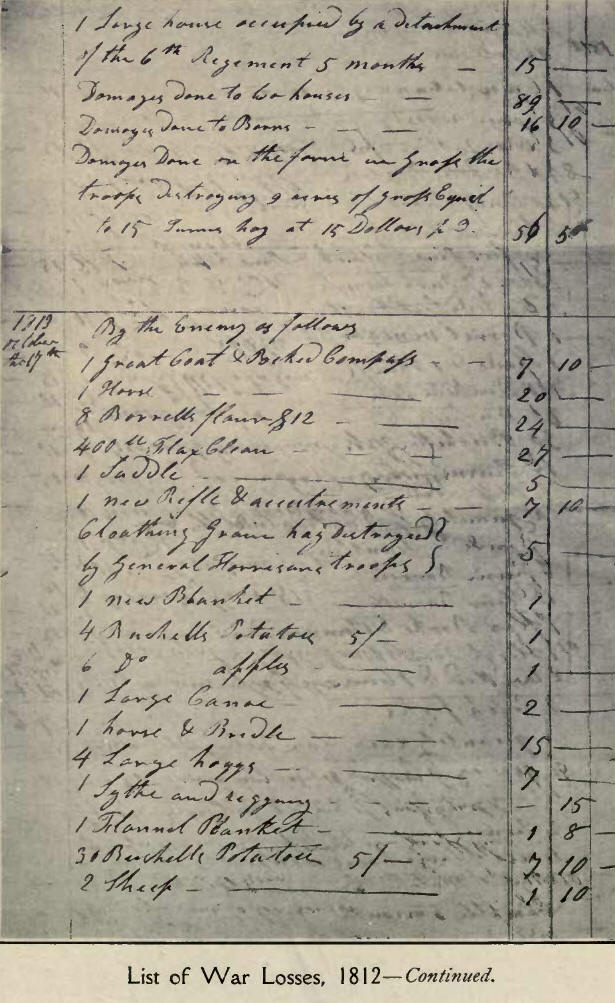 1 Large house occupied by a detachment
of the 6th Regement 5 months — 15 —
Damages done to two houses — — 89 —
Damages Done to Barns — — — 16 10 —
Damages Done on the farm in Grass the
troops destroying 9 acres of grass Equil
to 15 Tunns hay at 15 Dollars p 56 5
1813 By the Enemy as follows
october
the 17th
1 Great Coat & Pocked Compass — — 7 10 —
1 Horse — — — 20 —
8 Barrells flour 12 — — 24 —
400 Flax Clean — — 27 —
1 Saddle — — 5 —
1 new Rifle & accutrements — — 7 10 —
Cloathing Grain hay Destroyed }
by General Harrisons troops } 5 —
1 new Blanket — — 1
4 Bushells Potatoes 5/— 1
6 Do apples — — 1 —
1 Large Canoe — 2 —
1 horse & Bridle — — 15 —
4 Large hoggs — — 7
1 Sythe and — — — 15
1 Flannel Blanket — — 1 8 —
30 Bushells Potatoes 5/— 7 10 —
2 Sheep — — 1 10
List of War Losses, 1812—Continued.